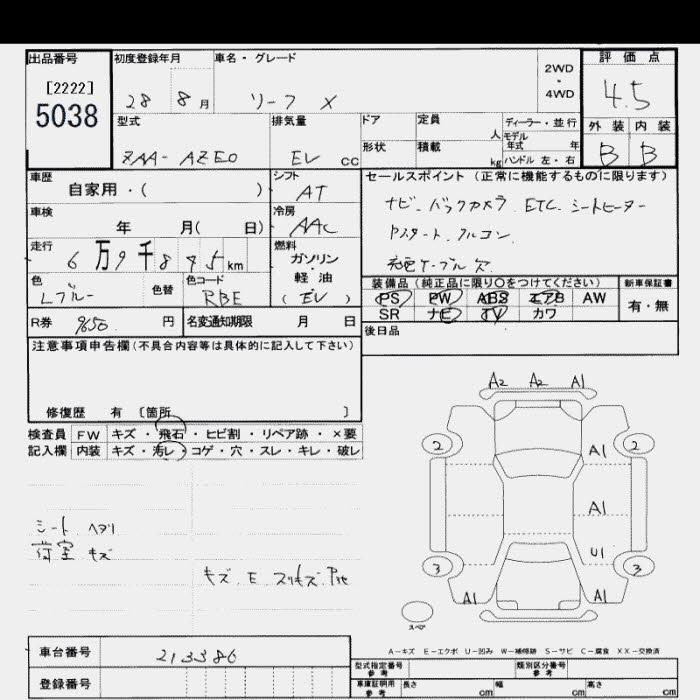 出品番号 初度登録年月 車名・グレード 評価点
[2222]
5038
28 8月 リーフ X 2WD・4WD 4.5
型式 排気量 ドア 定員 人 ディーラー・並行 外装 内装
モデル年式 年
ZAA-AZE0 EV cc 形状 積載 kg ハンドル 左・右 B B
車歴 シフト セールスポイント (正常に機能するものに限ります)
自家用・( ) AT ナビ. バックカメラ. ETC. シートヒーター
車検 冷房 Pスタート. アルコン.
年 月( 日) AAC 充電ケーブル欠
走行 燃料
6万9千895km ガソリン・軽油
色 色替 色コード (EV)
Lブルー RBE
装備品 (純正品に限り○をつけてください) 新車保証書
PS PW ABS エアB AW 有・無
SR ナビ TV カワ
R券 9650 円 名変通知期限 月 日 後日品
注意事項申告欄 (不具合内容等は具体的に記入して下さい)
修復歴 有 〔箇所 〕
検査員 FW キズ・飛石・ヒビ割・リペア跡・×要
記入欄 内装 キズ・汚レ・コゲ・穴・スレ・キレ・破レ
A2 A2 A1
2 2
A1
A1
シート ヘタリ
荷室 キズ
U1
3 3
キズ. E. スリキズ.
A1 A1
スペア
A-キズ E-エクボ U-凹み W-補修跡 S-サビ C-腐食 XX-交換済
車台番号 213386
登録番号
型式指定番号 参考 類別区分番号 参考
車庫証明用 参考 長さ cm 幅 cm 高さ cm